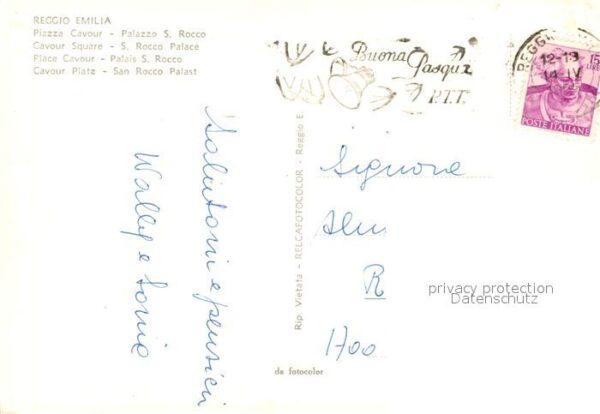 REGGIO EMILIA
Piazza Cavour - Palazzo S. Rocco
Cavour Square - S. Rocco Palace
Place Cavour - Palais S. Rocco
Cavour Platz - San Rocco Palast
Buona
Pasqua
P.T.T.
REGGIO
12-13
14 IV
15
LIRE
POSTE ITALIANE
Salutoni e pensieri
Wally e Sonia
Rip. Vietata - RELCAFOTOCOLOR - Reggio E.
Signore
R
1700
privacy protection
Datenschutz
da fotocolor